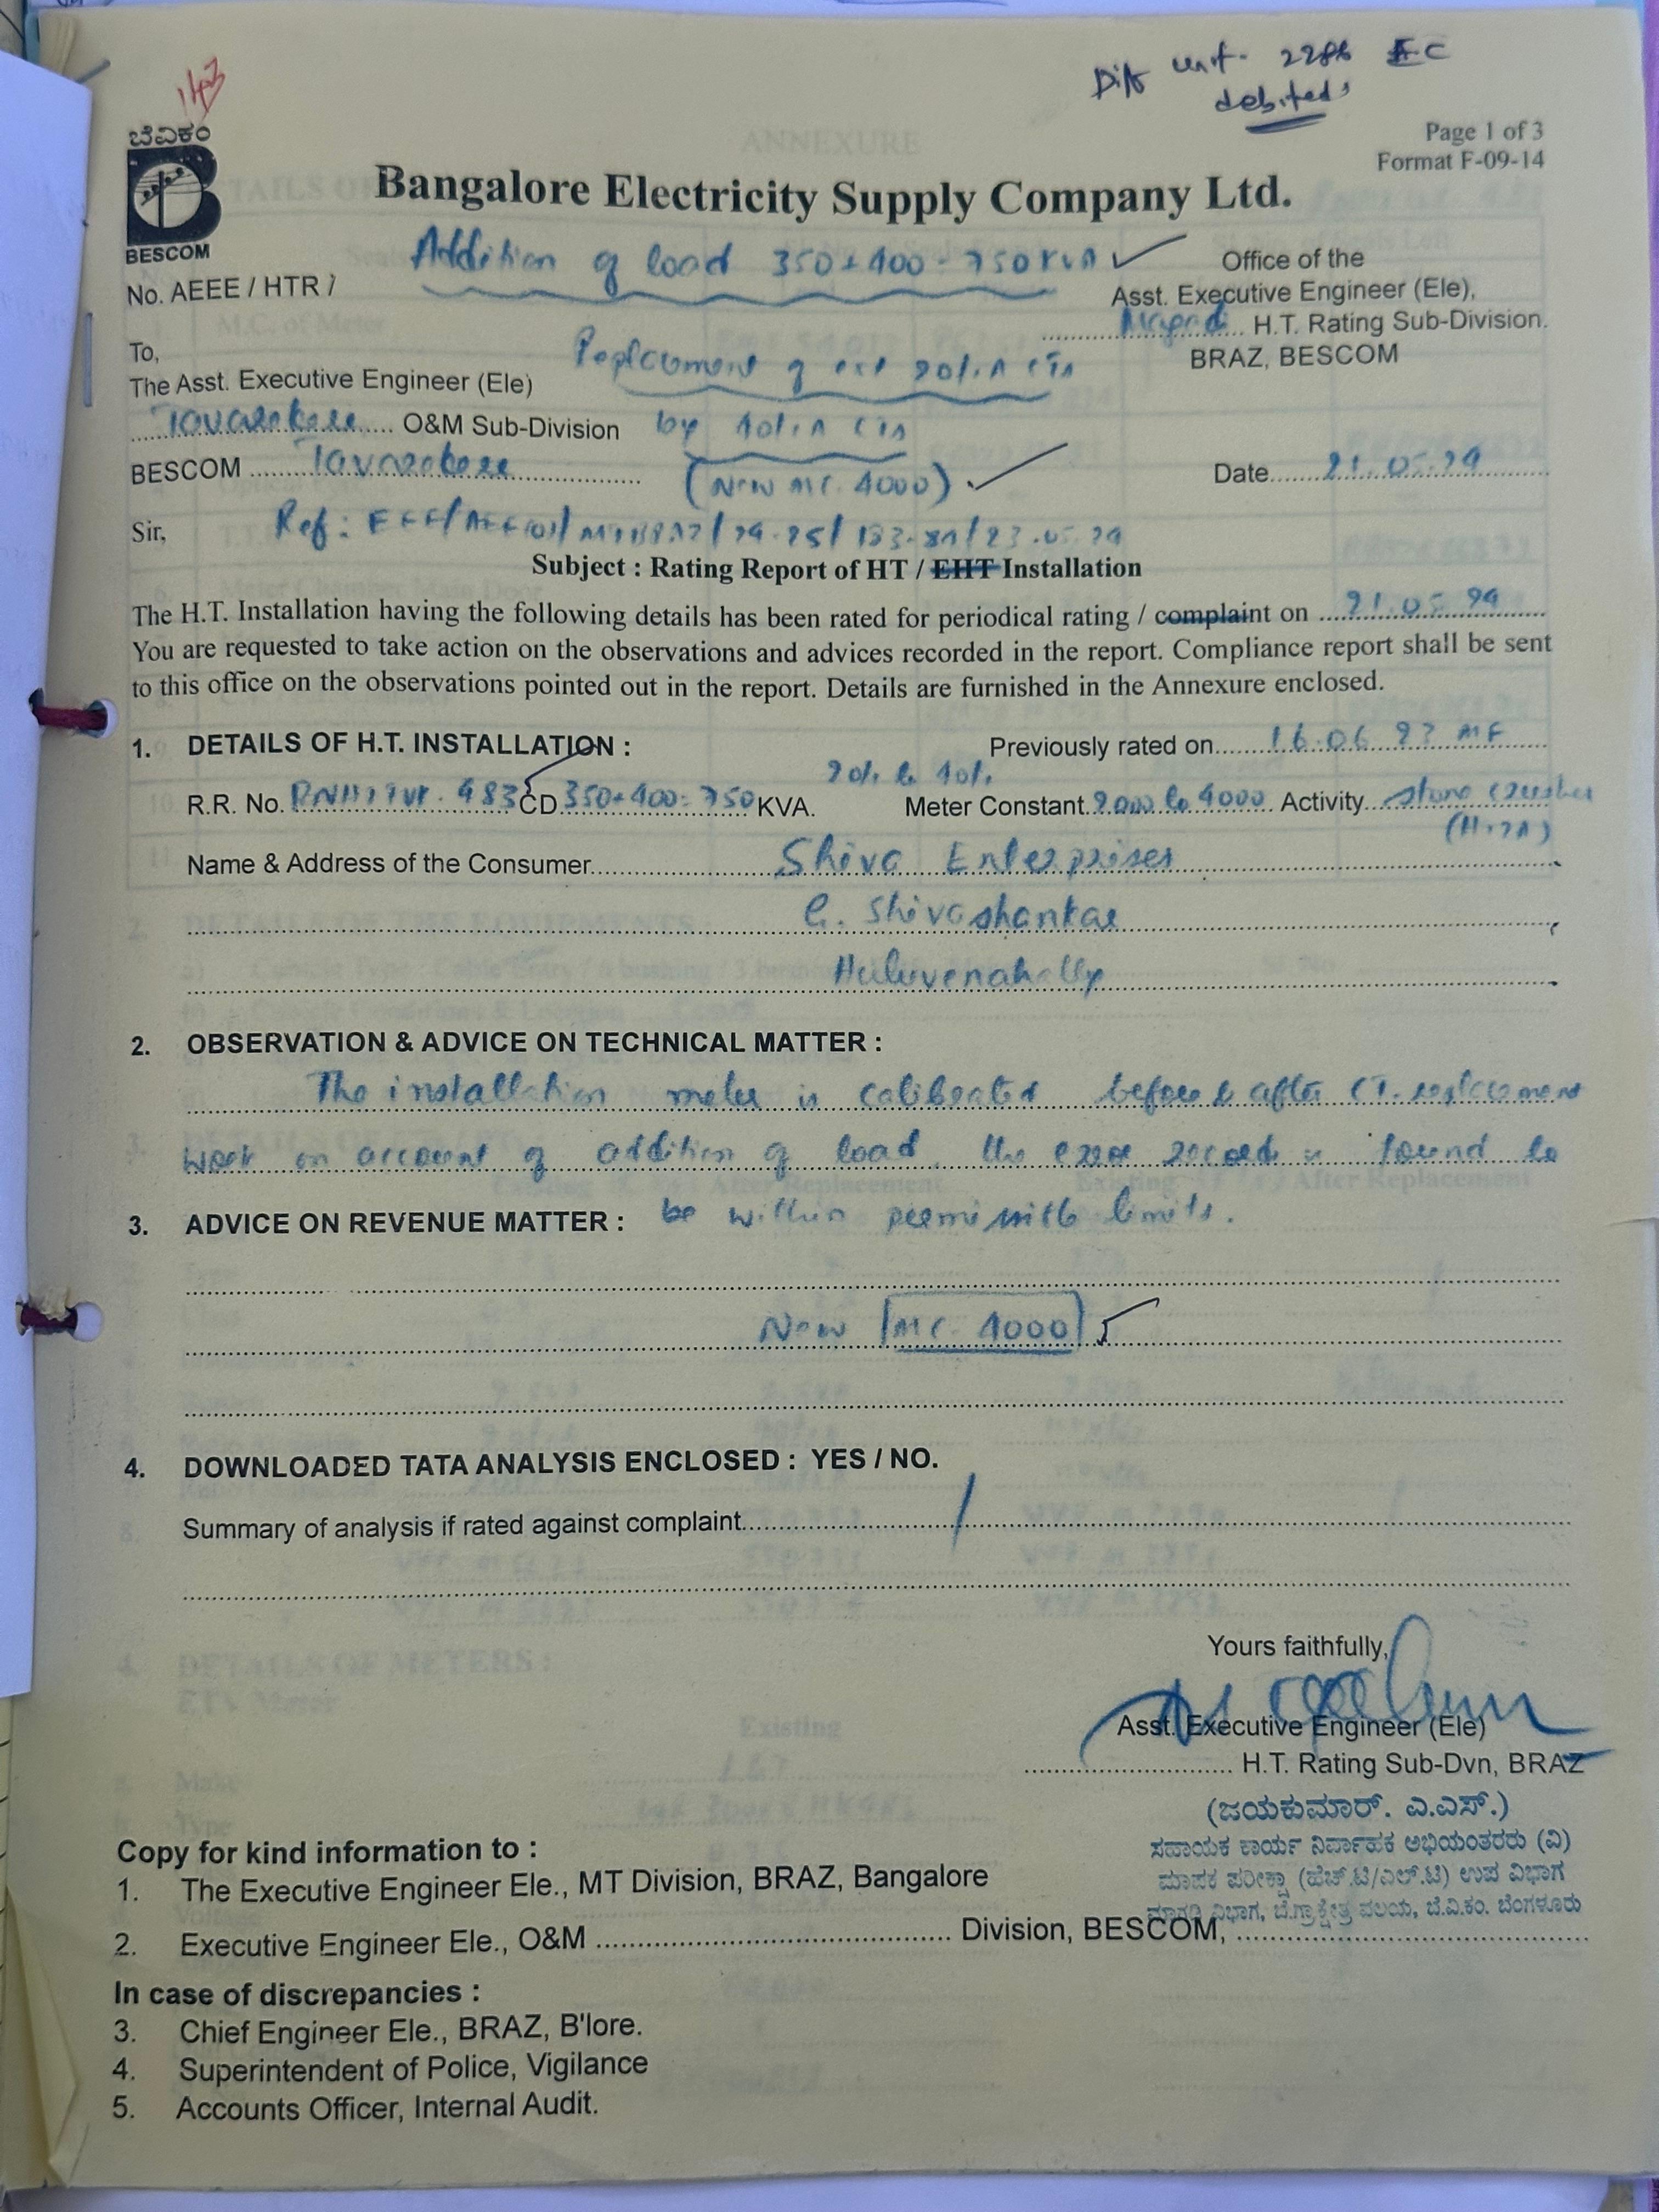 143
Diff unit- 2286 EC
debited
ಬೆವಿಕಂ
BESCOM
Page 1 of 3
Format F-09-14
Bangalore Electricity Supply Company Ltd.
Addition of load 350+400=750KVA
No. AEEE / HTR /
Office of the
Asst. Executive Engineer (Ele),
Magadi H.T. Rating Sub-Division.
BRAZ, BESCOM
Replacement of ext 20/1A CTs
by 40/1A CTs
(New MC. 4000)
To,
The Asst. Executive Engineer (Ele)
Tavarekere O&M Sub-Division
BESCOM Tavarekere
Date 21.05.24
Sir,
Ref: 23.05.24
Subject : Rating Report of HT / EHT Installation
The H.T. Installation having the following details has been rated for periodical rating / complaint on 21.05.24
You are requested to take action on the observations and advices recorded in the report. Compliance report shall be sent
to this office on the observations pointed out in the report. Details are furnished in the Annexure enclosed.
1. DETAILS OF H.T. INSTALLATION : Previously rated on 16.06.23 MF
20/1 to 40/1
R.R. No. 483 CD 350+400=750 KVA. Meter Constant 2000 to 4000 Activity stone crusher
Name & Address of the Consumer Shiva Enterprises
G. Shivashankar
Huluvenahally
2. OBSERVATION & ADVICE ON TECHNICAL MATTER :
The installation meter is calibrated before & after CT. replacement
work on account of addition of load. the error record is found to
3. ADVICE ON REVENUE MATTER : be within permissible limits.
New MC. 4000
4. DOWNLOADED TATA ANALYSIS ENCLOSED : YES / NO.
Summary of analysis if rated against complaint
Yours faithfully,
Asst. Executive Engineer (Ele)
H.T. Rating Sub-Dvn, BRAZ
(ಜಯಕುಮಾರ್. ಎ.ಎಸ್.)
ಸಹಾಯಕ ಕಾರ್ಯ ನಿರ್ವಾಹಕ ಅಭಿಯಂತರರು (ವಿ)
ಮಾಪಕ ಪರೀಕ್ಷಾ (ಹೆಚ್.ಟಿ/ಎಲ್.ಟಿ) ಉಪ ವಿಭಾಗ
ಮಾಗಡಿ ವಿಭಾಗ, ಬೆ.ಗ್ರಾ.ಕ್ಷೇತ್ರ ವಲಯ, ಬೆ.ವಿ.ಕಂ. ಬೆಂಗಳೂರು
Copy for kind information to :
1. The Executive Engineer Ele., MT Division, BRAZ, Bangalore
2. Executive Engineer Ele., O&M Division, BESCOM,
In case of discrepancies :
3. Chief Engineer Ele., BRAZ, B'lore.
4. Superintendent of Police, Vigilance
5. Accounts Officer, Internal Audit.